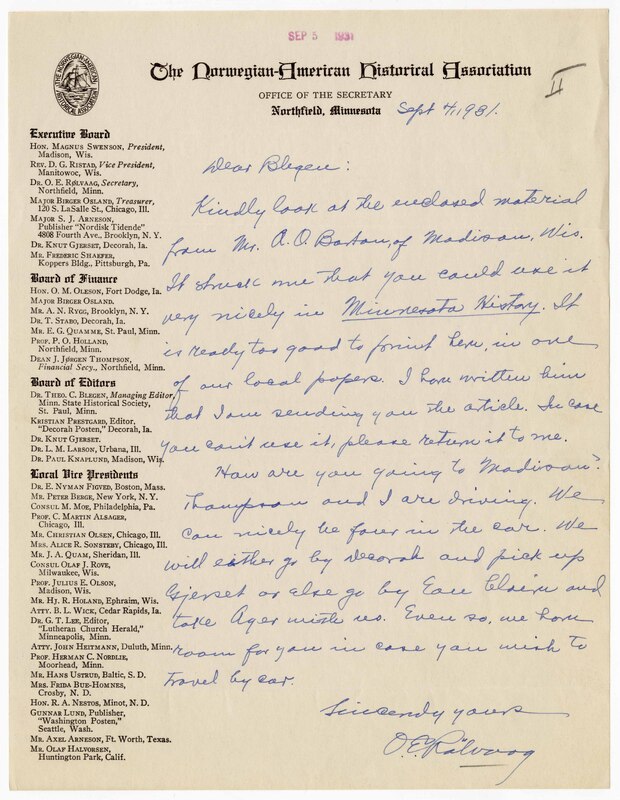 SEP 5 1931
The Norwegian-American Historical Association
OFFICE OF THE SECRETARY
Northfield, Minnesota
Sept 4, 1931.
II
THE NORWEGIAN-AMERICAN HISTORICAL ASSOCIATION
Executive Board
HON. MAGNUS SWENSON, President,
Madison, Wis.
REV. D. G. RISTAD, Vice President,
Manitowoc, Wis.
DR. O. E. RØLVAAG, Secretary,
Northfield, Minn.
MAJOR BIRGER OSLAND, Treasurer,
120 S. LaSalle St., Chicago, Ill.
MAJOR S. J. ARNESON,
Publisher "Nordisk Tidende"
4808 Fourth Ave., Brooklyn, N. Y.
DR. KNUT GJERSET, Decorah, Ia.
MR. FREDERIC SHAEFER,
Koppers Bldg., Pittsburgh, Pa.
Board of Finance
HON. O. M. OLESON, Fort Dodge, Ia.
MAJOR BIRGER OSLAND.
MR. A. N. RYGG, Brooklyn, N. Y.
DR. T. STABO, Decorah, Ia.
MR. E. G. QUAMME, St. Paul, Minn.
PROF. P. O. HOLLAND,
Northfield, Minn.
DEAN J. JØRGEN THOMPSON,
Financial Secy., Northfield, Minn.
Board of Editors
DR. THEO. C. BLEGEN, Managing Editor,
Minn. State Historical Society,
St. Paul, Minn.
KRISTIAN PRESTGARD, Editor,
"Decorah Posten," Decorah, Ia.
DR. KNUT GJERSET.
DR. L. M. LARSON, Urbana, Ill.
DR. PAUL KNAPLUND, Madison, Wis.
Local Vice Presidents
DR. E. NYMAN FIGVED, Boston, Mass.
MR. PETER BERGE, New York, N. Y.
CONSUL M. MOE, Philadelphia, Pa.
PROF. C. MARTIN ALSAGER,
Chicago, Ill.
MR. CHRISTIAN OLSEN, Chicago, Ill.
MRS. ALICE R. SONSTEBY, Chicago, Ill.
MR. J. A. QUAM, Sheridan, Ill.
CONSUL OLAF J. ROVE,
Milwaukee, Wis.
PROF. JULIUS E. OLSON,
Madison, Wis.
MR. HJ. R. HOLAND, Ephraim, Wis.
ATTY. B. L. WICK, Cedar Rapids, Ia.
DR. G. T. LEE, Editor,
"Lutheran Church Herald,"
Minneapolis, Minn.
ATTY. JOHN HEITMANN, Duluth, Minn.
PROF. HERMAN C. NORDLIE,
Moorhead, Minn.
MR. HANS USTRUD, Baltic, S. D.
MRS. FRIDA BUE-HOMNES,
Crosby, N. D.
HON. R. A. NESTOS, Minot, N. D.
GUNNAR LUND, Publisher,
"Washington Posten,"
Seattle, Wash.
MR. AXEL ARNESON, Ft. Worth, Texas.
MR. OLAF HALVORSEN,
Huntington Park, Calif.
Dear Blegen:
Kindly look at the enclosed material
from Mr. A. O. Barton, of Madison, Wis.
It struck me that you could use it
very nicely in Minnesota History. It
is really too good to print here, in one
of our local papers. I have written him
that I am sending you the article. In case
you can't use it, please return it to me.
How are you going to Madison?
Thompson and I are driving. We
can nicely be four in the car. We
will either go by Decorah and pick up
Gjerset or else go by Eau Claire and
take Ager with us. Even so, we have
room for you in case you wish to
travel by car.
Sincerely yours
O. E. Rölvaag